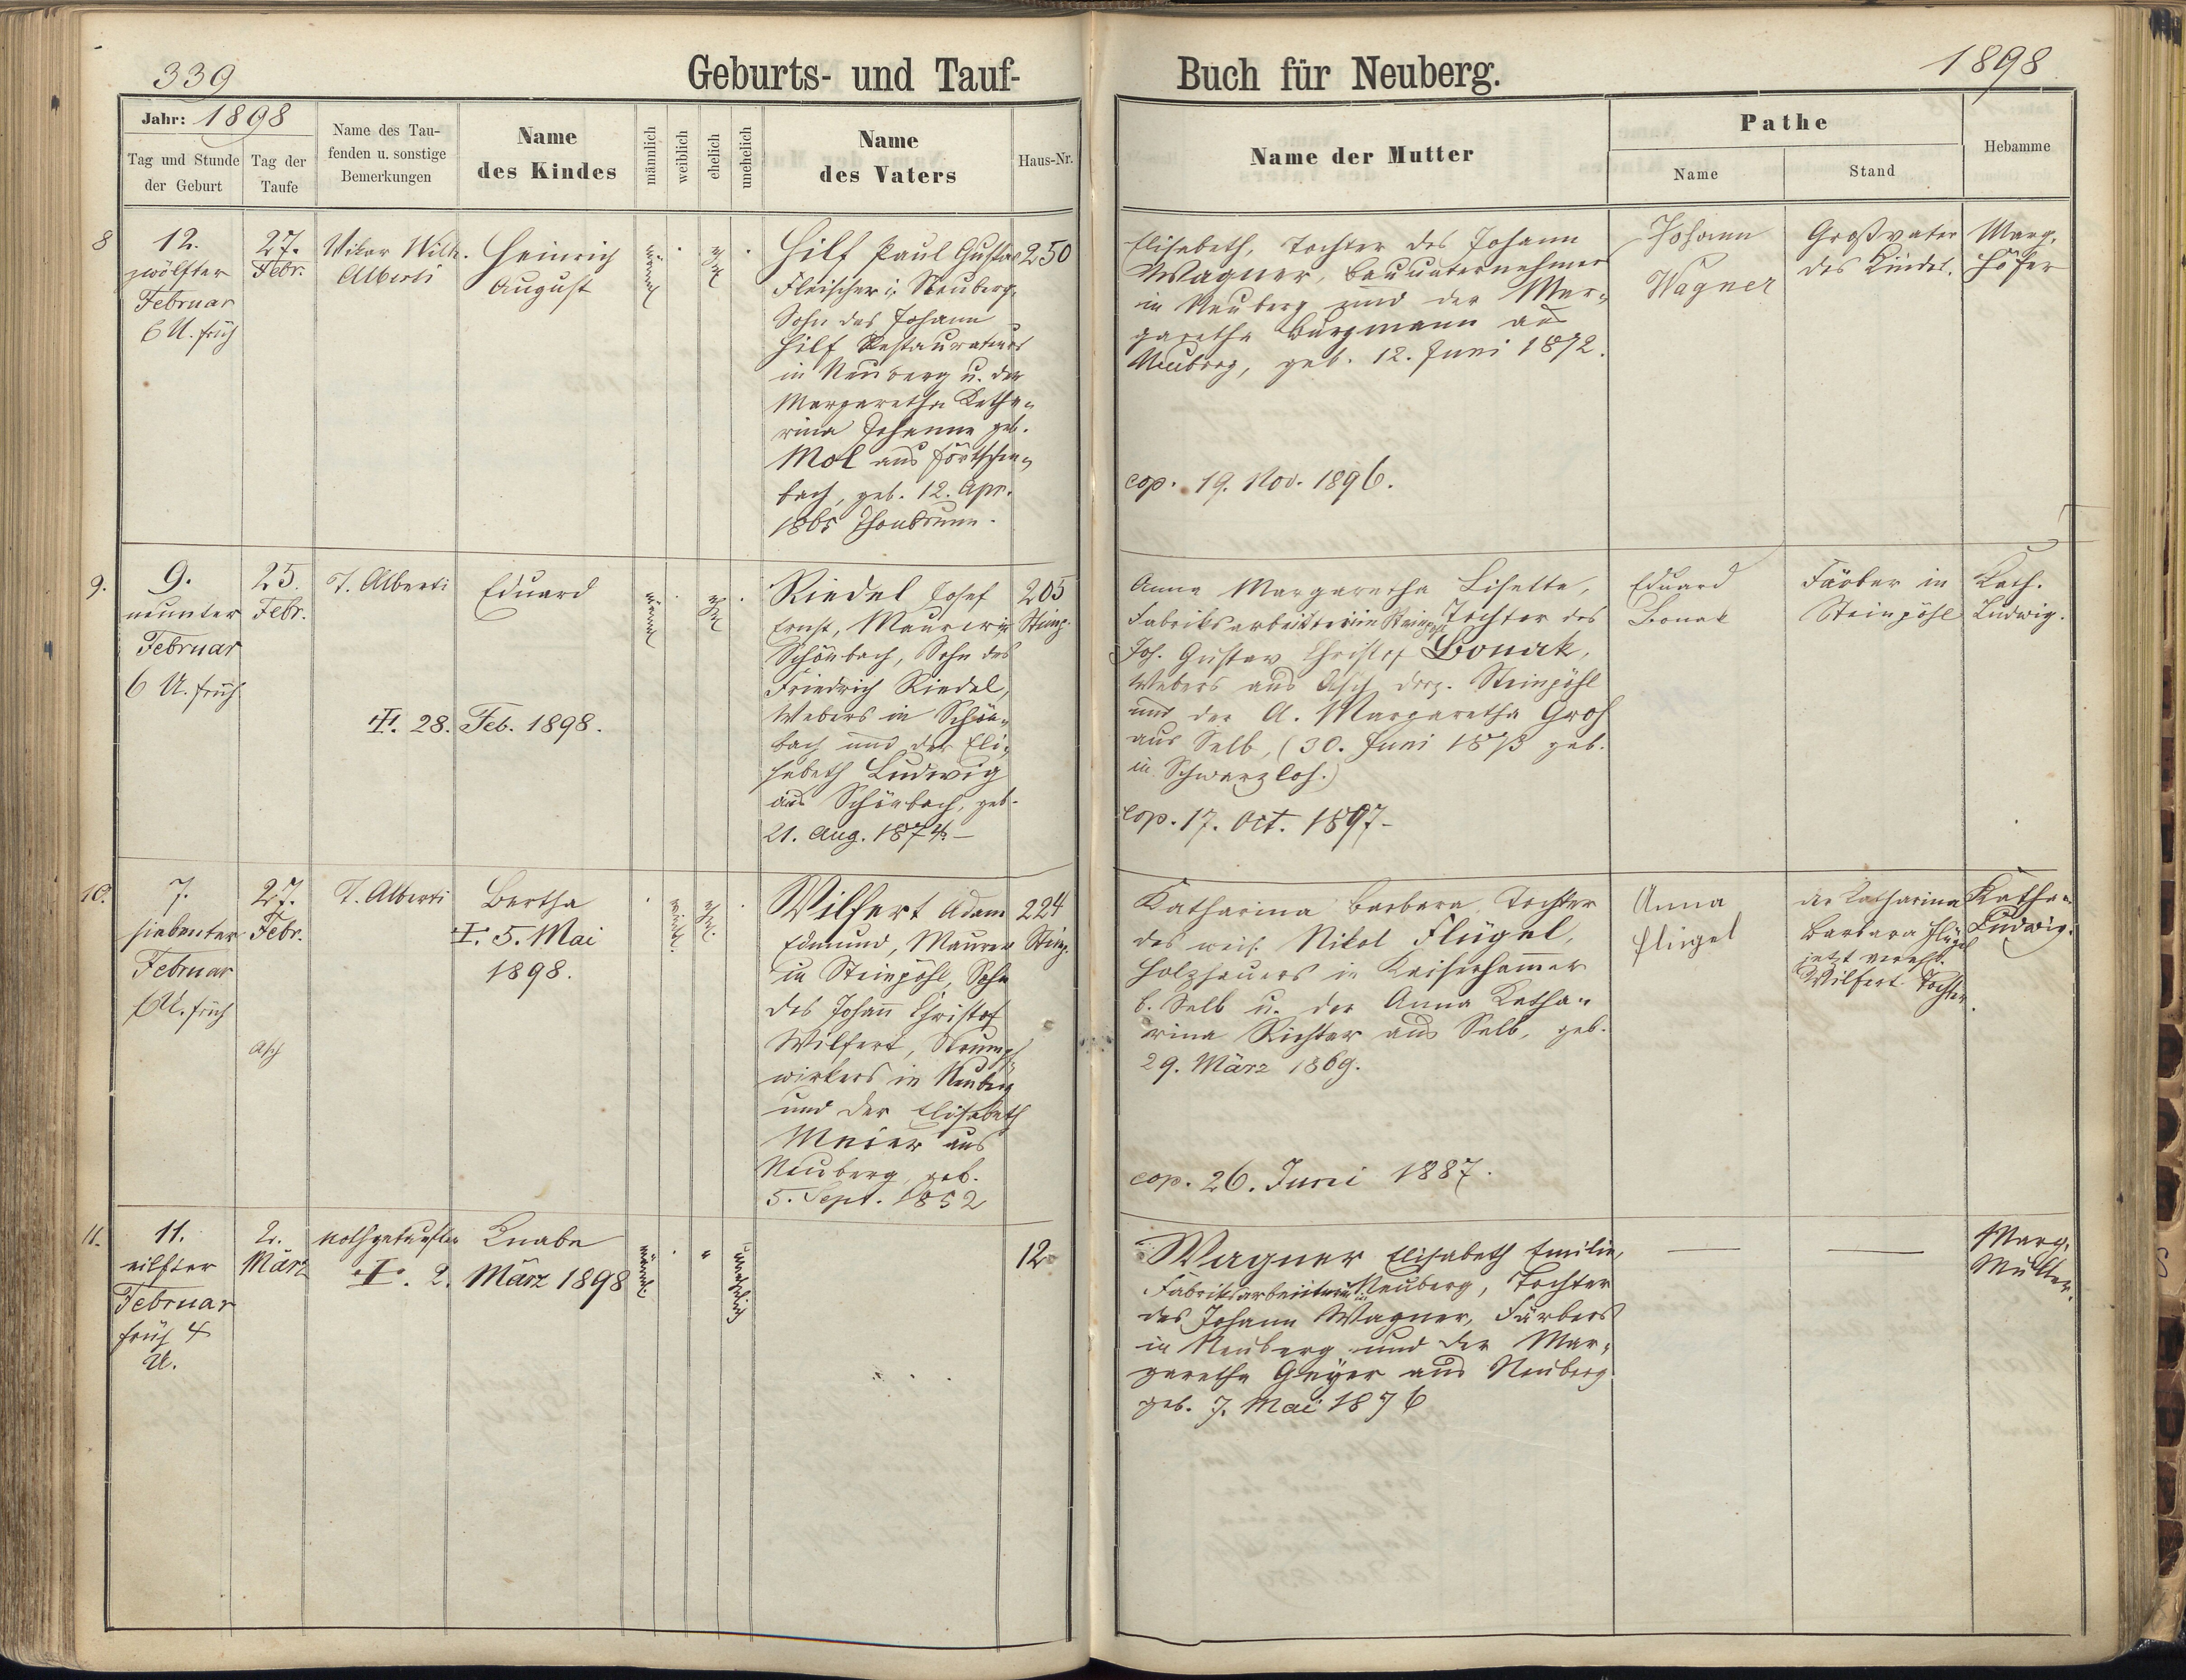 339
Geburts- und Tauf-
Buch für Neuberg.
1898
Jahr: 1898
Tag und Stunde
der Geburt
Tag der
Taufe
Name des Tau-
fenden u. sonstige
Bemerkungen
Name
des Kindes
männlich
weiblich
ehelich
unehelich
Name
des Vaters
Haus-Nr.
Name der Mutter
Pathe
Name
Stand
Hebamme
8
12.
zwölfter
Februar
6 U. früh
27.
Febr.
Vikar Wilh.
Alberti
Heinrich
August
männl.
ehel.
Hilf Paul Gustav
Fleischer i. Neuberg,
Sohn des Johann
Hilf Restaurateurs
in Neuberg u. der
Margaretha Katha-
rina Johanna geb.
Mol aus
bach, geb. 12. Apr.
1865 Thonbrunn.
250
Elisabeth, Tochter des Johann
Wagner, Bauunternehmer
in Neuberg und der Mar-
garetha Burgmann aus
Neuberg, geb. 12. Juni 1872.
cop. 19. Nov. 1896.
Johann
Wagner
Großvater
des Kindes.
Marg.
Höfer
9.
9.
neunter
Februar
6 U. früh
25.
Febr.
T. Alberti
Eduard
männl.
ehel.
28. Feb. 1898.
Riedel Josef
Ernst, Maurer in
Schönbach, Sohn des
Friedrich Riedel,
Webers in Schön-
bach und der Eli-
sabeth Ludwig
aus Schönbach, geb.
21. Aug. 1874.
205
Steinp.
Anna Margaretha Lisette,
Fabriksarbeiterin in Steinpöhl Tochter des
Joh. Gustav Christof Bonak,
Webers aus Asch, derz. Steinpöhl
und der A. Margaretha Groh
aus Selb, (30. Juni 1873 geb.
in Schwarzloh.)
cop. 17. Oct. 1897
Eduard
Bonak
Färber in
Steinpöhl
Kath.
Ludwig.
10.
7.
siebenter
Februar
6 U. früh
27.
Febr.
Asch
T. Alberti
Bertha
5. Mai
1898.
weibl.
ehel.
Wilfert Adam
Edmund, Maurer
in Steinpöhl, Sohn
des Johann Christof
Wilfert, Strumpf-
wirkers in Neuberg
und der Elisabeth
Meier aus
Neuberg, geb.
5. Sept. 1852
224
Steinp.
Katharina Barbara, Tochter
des weil. Nikol Flügel,
Holzhauers in Kaiserhammer
b. Selb u. der Anna Katha-
rina Richter aus Selb, geb.
29. März 1869.
cop. 26. Juni 1887.
Anna
Flügel
der Katharina
Barbara Flügel
jetzt verehl.
Wilfert Tochter.
Katha.
Ludwig.
11.
11.
eilfter
Februar
früh 4
U.
2.
März
nothgetaufter
Knabe
2. März 1898
männl.
"
unehelich
12
Wagner Elisabeth Emilie,
Fabriksarbeiterin in Neuberg, Tochter
des Johann Wagner, Färbers
in Neuberg und der Mar-
garetha Geyer aus Neuberg
geb. 7. Mai 1876
Marg.
Müller.